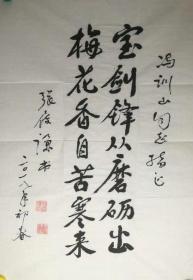 冯训山同志指正
宝剑锋从磨砺出
梅花香自苦寒来
张俊谦书
二〇一九年初春